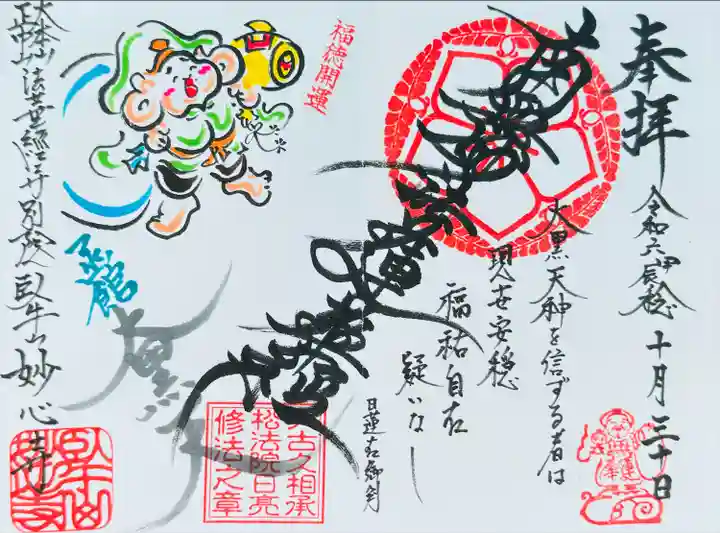 奉拝
令和六甲辰稔 十月三十日
大黒天神を信ずる者は
現世安穏
福祐自在
疑いなし
日蓮在御判
南無妙法蓮華経
福徳開運
函館
大黒天
法華経寺別院臥牛山妙心寺
古久相承
松法院日亮
修法之章
臥牛山
妙心寺